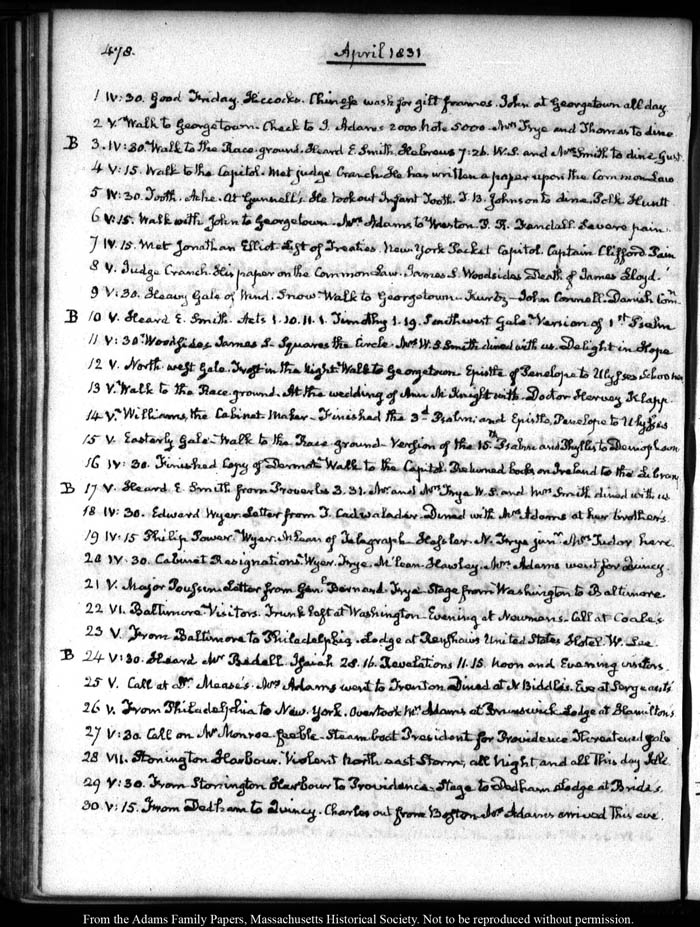 478.
April 1831
1 IV:30. Good Friday. Hiccocks. Chinese wash for gilt frames. John at Georgetown all day
2 V. Walk to Georgetown. Check to J. Adams 2000 Note 5000. Mrs Frye and Thomas to dine
B 3. IV:30. Walk to the Race ground. Heard E. Smith. Hebrews 7:26. W.S. and Mrs Smith to dine Gust.
4 V:15. Walk to the Capitol. Met judge Cranch. He has written a paper upon the Common Law
5 IV:30. Tooth. Ache. At Gunnell's. He took out Infant Tooth. J. B. Johnson to dine. Polk. Huntt
6 V:15. Walk with John to Georgetown. Mrs Adams to Weston. P. R. Fendall. Severe pain.
7 IV.15. Met Jonathan Elliot. List of Treaties. New York Packet. Capitol. Captain Clifford. Pain
8 V. Judge Cranch. His paper on the Common Law. James S. Woodsides. Death of James Lloyd.
9 V:30. Heavy Gale of Wind. Snow. Walk to Georgetown. Kurtz. John Connell. Danish Comn.
B 10 V. Heard E. Smith. Acts 1.10.11. 1. Timothy 1.19. Southwest Gale. Version of 1st Psalm
11 V:30. Woodsides James S. Squares the Circle. Mrs W. S. Smith dined with us. Delight in Hope
12 V. North west Gale. Frost in the Night. Walk to Georgetown. Epistle of Penelope to Ulysses. Schooner
13 V. Walk to the Race ground. At the wedding of Ann M. Knight with Doctor Harvey Klapp
14 V. Williams, the Cabinet Maker. Finished the 3d Psalm; and Epistle, Penelope to Ulysses
15 V. Easterly Gale. Walk to the Race ground. Version of the 15th Psalm and Phyllis to Demophoon
16 IV:30. Finished Copy of Dermot. Walk to the Capitol. Returned books on Ireland to the Library
B 17 V. Heard E. Smith from Proverbs 3.31. Mr and Mrs Frye W. S. and Mrs Smith dined with us
18 IV:30. Edward Wyer. Letter from T. Cadwalader. Dined with Mrs Adams at her brother's.
19 IV:15 Philip Power. Wyer. McLean of Telegraph. Hassler. N. Frye junr. Mrs Tudor here
20 IV.30. Cabinet Resignations. Wyer. Frye. McLean. Hawley. Mrs Adams went for Quincy.
21 V. Major Poussin. Letter from Genl Bernard. Frye. Stage from Washington to Baltimore
22 VI. Baltimore. Visitors. Trunk left at Washington. Evening at Newmans. Call at Coale's
23 V. From Baltimore to Philadelphia. Lodge at Renshaws United States Hotel. W. Lee
B 24 V:30. Heard Mr Bedell. Isaiah 28.16. Revelations 11.15. Noon and Evening visitors.
25 V. Call at Dr. Mease's. Mrs Adams went to Trenton. Dined at N Biddle's. Eve at Sergeants
26 V. From Philadelphia to New York. Overtook Mrs Adams at Brunswick. Lodge at Hamiltons
27 V:30 Call on Mr Monroe feeble. Steam boat President for Providence. Threatened gale
28 VII. Stonington Harbour. Violent North east Storm, all Night, and all This day. Idle
29 V:30. From Stonington Harbour to Providence. Stage to Dedham. Lodge at Bride's.
30 V:15. From Dedham to Quincy. Charles out from Boston. Mrs Adams arrived This eve.
From the Adams Family Papers, Massachusetts Historical Society. Not to be reproduced without permission.